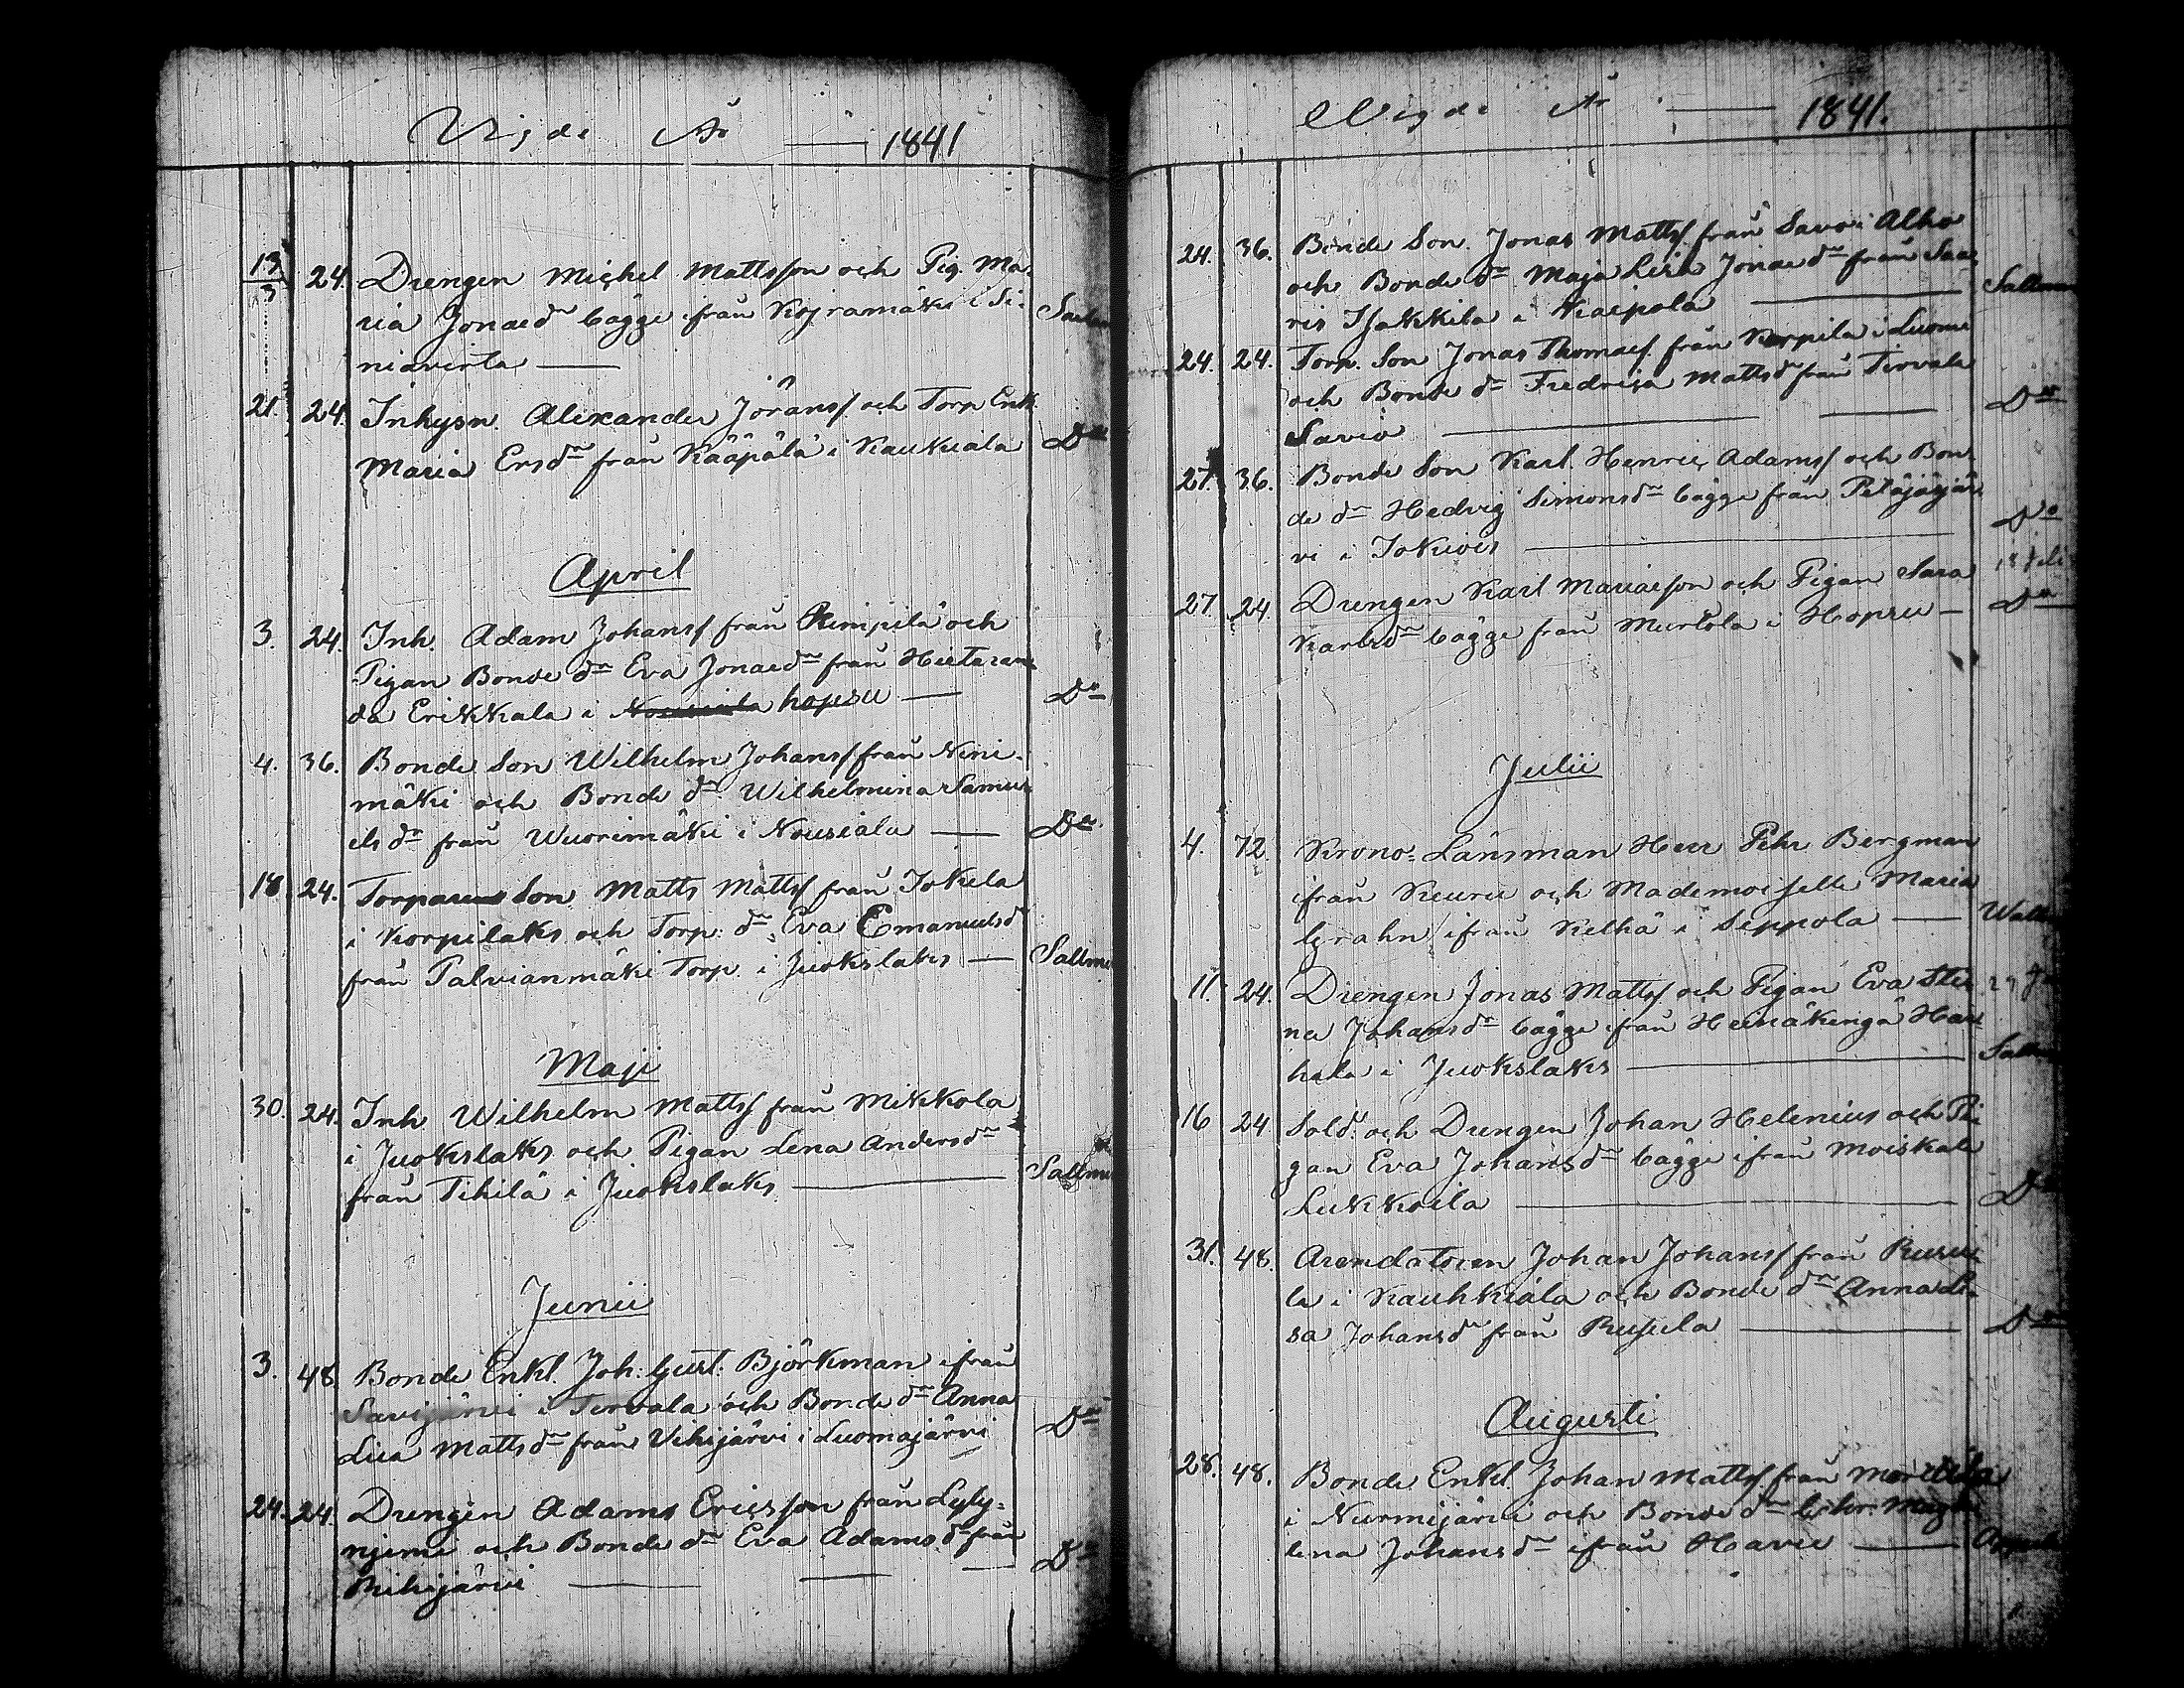 Vigde År — 1841
13/3 24. Drengen Michel Mattsson och Pig. Ma-
ria Jonaedr bägge ifrån Kojramäki i Si-
niävirta — 
21. 24. Inhysn. Alexander Jöranss och Torp Enk.
Maria Ersdr från Kääpälä i Kaukiala Do
April
3. 24. Inh. Adam Johanss från Rimpilä och
Pigan Bonde dr Eva Jonaedr från Hietaran-
da Erikkala i Nousiala hopsu — Do
4. 36. Bonde Son Wilhelm Johanss från Nini-
mäki och Bonde dr Wilhelmina Samu-
els dr från Wuorimäki i Nousiala — Do
18. 24. Torparens Son Matts Mattss från Jokela
i Korpilaks och Torp. dr Eva Emanuelsdr
från Palvianmäki Torp. i Juokslaks — Sallme
Maji
30. 24. Inh Wilhelm Mattss från Mikkola
i Juokslaks och Pigan Lena Andersdr
från Tihilä i Juokslaks — Sallme
Junii
3. 48. Bonde Enkl. Joh: Gust. Björkman ifrån
Savijärvi i Tirvala och Bonde dr Anna
Lisa Mattsdr från Vihijärvi i Luomajärvi Do
24. 24. Drengen Adam Ericsson från Lyly-
njemi och Bonde dr Eva Adamsdr från
Rihijärvi — Do
Vigde År — 1841.
24. 36. Bonde Son Jonas Mattss. från Savoi Alho
och Bonde dr Maja Lisa Jonaedr från Saa-
ris Isakkila i Kaipola — Sallme
24. 24. Torp. Son Jonas Thomaes. från Korpila i Luome
och Bonde dr Fredrica Mattsdr från Tirvala
Savio — Do
27. 36. Bonde Son Karl Henric Adamss och Bon-
de dr Hedvig Simonsdr bägge från Petäjäjär-
vi i Jokiois — Do
27. 24. Drengen Karl Mariaeson och Pigan Sara
Karlsdr bägge från Murtola i Hopsu — Do
Julii
4. 72. Krono-Länsman Herr Pehr Bergman
ifrån Keuru och Mademoiselle Maria
Grahn ifrån Kelhä i Seppola —
11. 24. Drengen Jonas Mattss och Pigan Eva Sti-
na Johansdr bägge ifrån Heinäkengä Har-
hala i Juokslaks —
16 24 Sold. och Drengen Johan Helenius och Pi-
gan Eva Johansdr bägge ifrån Moiskala
Lukkoila — Do
31. 48. Arendatoren Johan Johanss från Ruusu-
la i Kauhkiala och Bonde dr Anna Li-
sa Johansdr från Rusula — Do
Augusti
28. 48. Bonde Enkl. Johan Mattss. från
i Nurmijärvi och Bonde dr Chr. Magda-
lena Johansdr ifrån Havu —